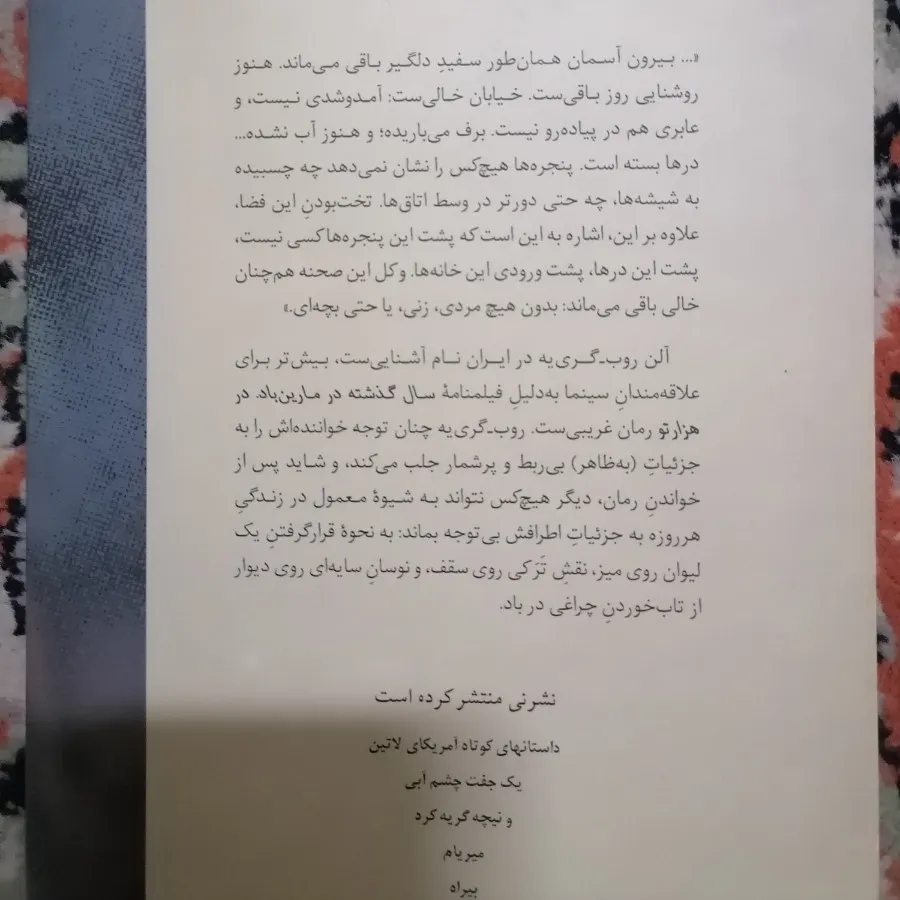 «... بیرون آسمان همان‌طور سفیدِ دلگیر باقی می‌ماند. هنوز
روشنایی روز باقی‌ست. خیابان خالی‌ست: آمدوشدی نیست، و
عابری هم در پیاده‌رو نیست. برف می‌باریده؛ و هنوز آب نشده...
درها بسته است. پنجره‌ها هیچ‌کس را نشان نمی‌دهد چه چسبیده
به شیشه‌ها، چه حتی دورتر در وسط اتاق‌ها. تخت‌بودنِ این فضا،
علاوه بر این، اشاره به این است که پشت این پنجره‌ها کسی نیست،
پشت این درها، پشت ورودی این خانه‌ها. و کل این صحنه هم‌چنان
خالی باقی می‌ماند: بدون هیچ مردی، زنی، یا حتی بچه‌ای.»
آلن روب‌ـگری‌یه در ایران نام آشنایی‌ست، بیش‌تر برای
علاقه‌مندانِ سینما به‌دلیلِ فیلمنامهٔ سال گذشته در مارین‌باد. در
هزارتو رمان غریبی‌ست. روب‌ـگری‌یه چنان توجه خواننده‌اش را به
جزئیاتِ (به‌ظاهر) بی‌ربط و پرشمار جلب می‌کند، و شاید پس از
خواندنِ رمان، دیگر هیچ‌کس نتواند به شیوهٔ معمول در زندگیِ
هرروزه به جزئیاتِ اطرافش بی‌توجه بماند: به نحوهٔ قرارگرفتنِ یک
لیوان روی میز، نقشِ تَرَکی روی سقف، و نوسانِ سایه‌ای روی دیوار
از تاب‌خوردنِ چراغی در باد.
نشرنی منتشر کرده است
داستانهای کوتاه آمریکای لاتین
یک جفت چشم آبی
و نیچه گریه کرد
میریام
بیراه